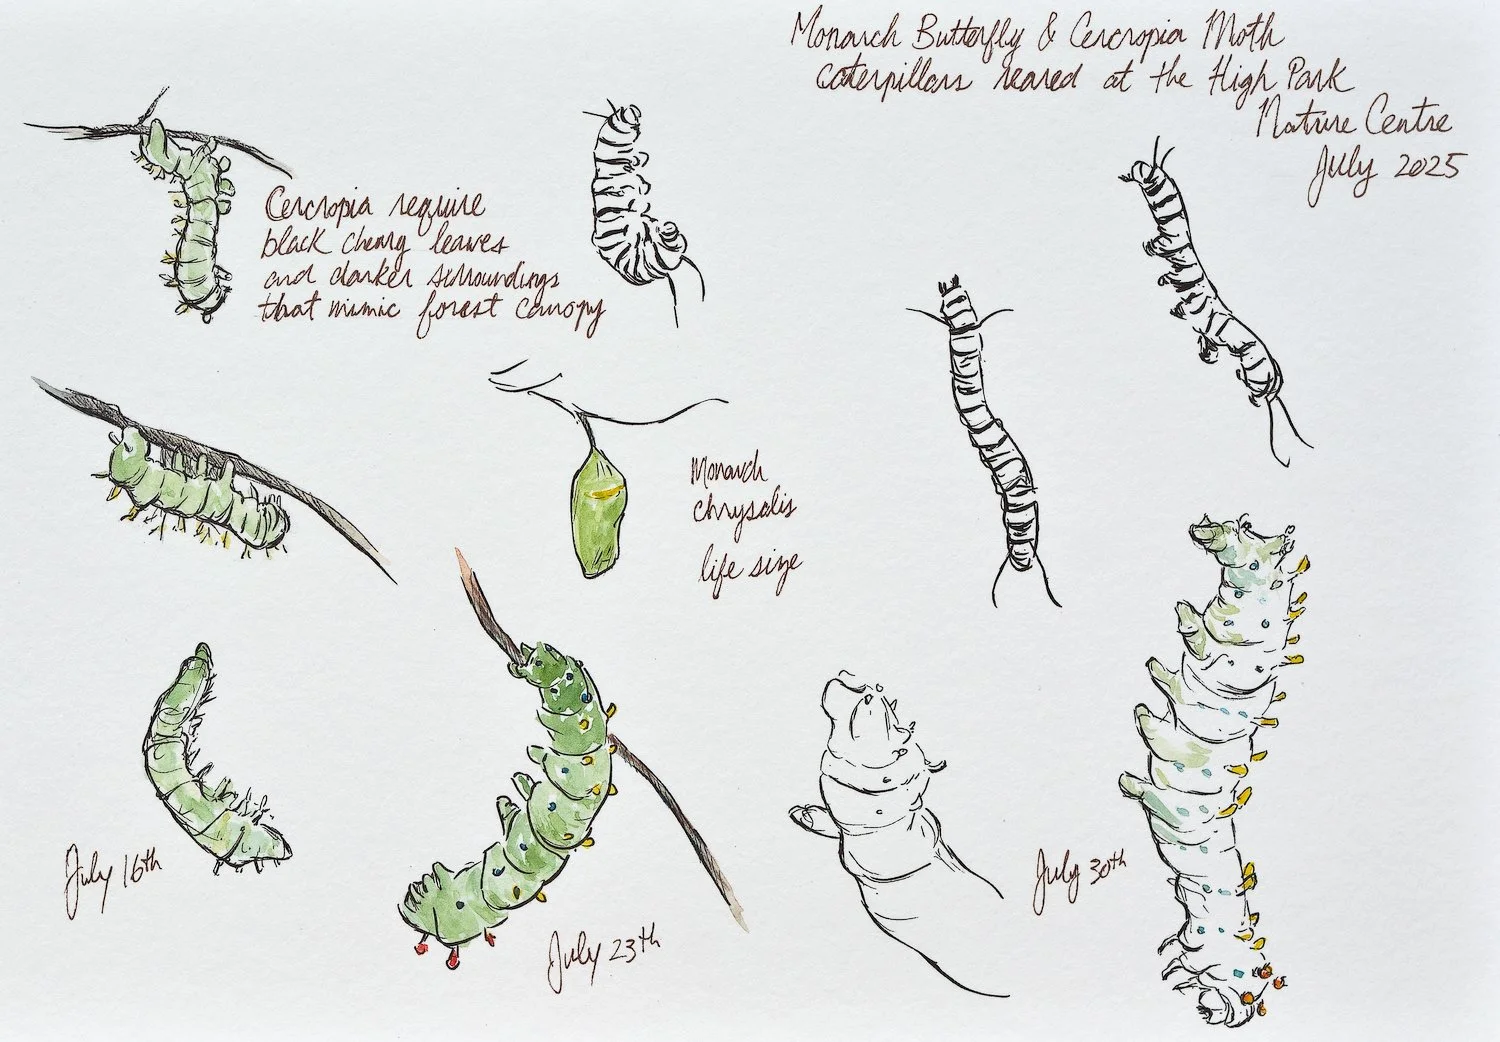 Monarch Butterfly & Cercropia Moth
caterpillars reared at the High Park
Nature Centre
July 2025
Cercropia require
black cherry leaves
and darker surroundings
that mimic forest canopy
Monarch
chrysalis
life size
July 16th
July 23th
July 30th